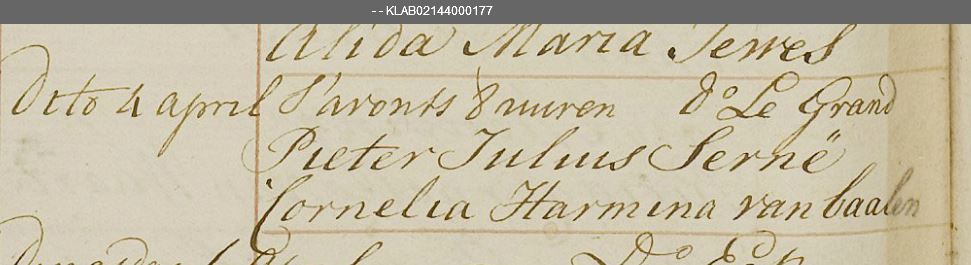 -- KLAB02144000177
Alida Maria Serres
Dito 4 april S'avonts 8 uuren Do Le Grand
Pieter Julius Sernë
Cornelia Harmina van baalen
Do